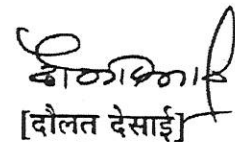 [दौलत देसाई]